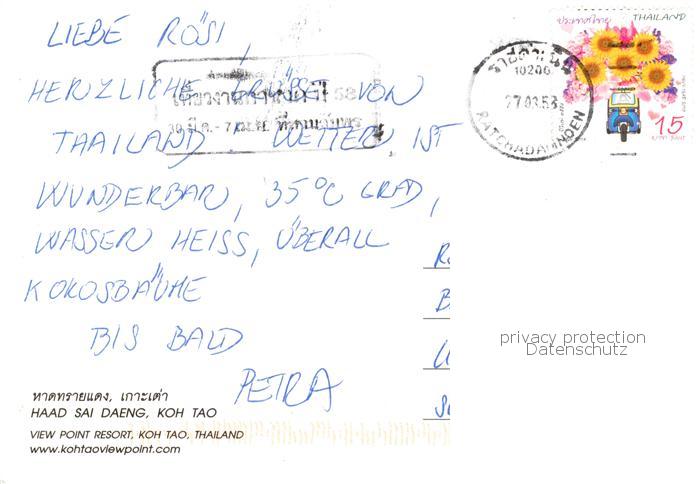 LIEBE RÖSI,
HERZLICHE GRÜSSE VON
THAILAND. WETTER IST
WUNDERBAR, 35°C GRAD,
WASSER HEISS, ÜBERALL
KOKOSBÄUME
BIS BALD
PETRA
หาดทรายแดง, เกาะเต่า
HAAD SAI DAENG, KOH TAO
VIEW POINT RESORT, KOH TAO, THAILAND
www.kohtaoviewpoint.com
ประเทศไทย THAILAND
15
ราชดำเนิน
10200
27.03.53
RATCHADAMNOEN
privacy protection
Datenschutz